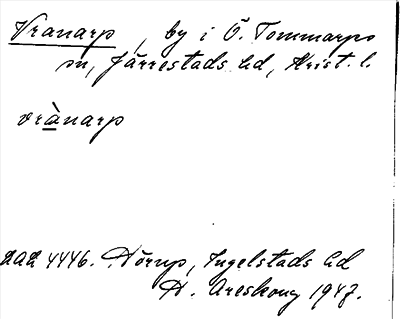 Vranarp, by i Ö. Tommarps
sn, Järrestads hd, Krist. l.
vrànarp
LAL 4446. Hörup, Ingelstads hd
H. Areskoug 1947.